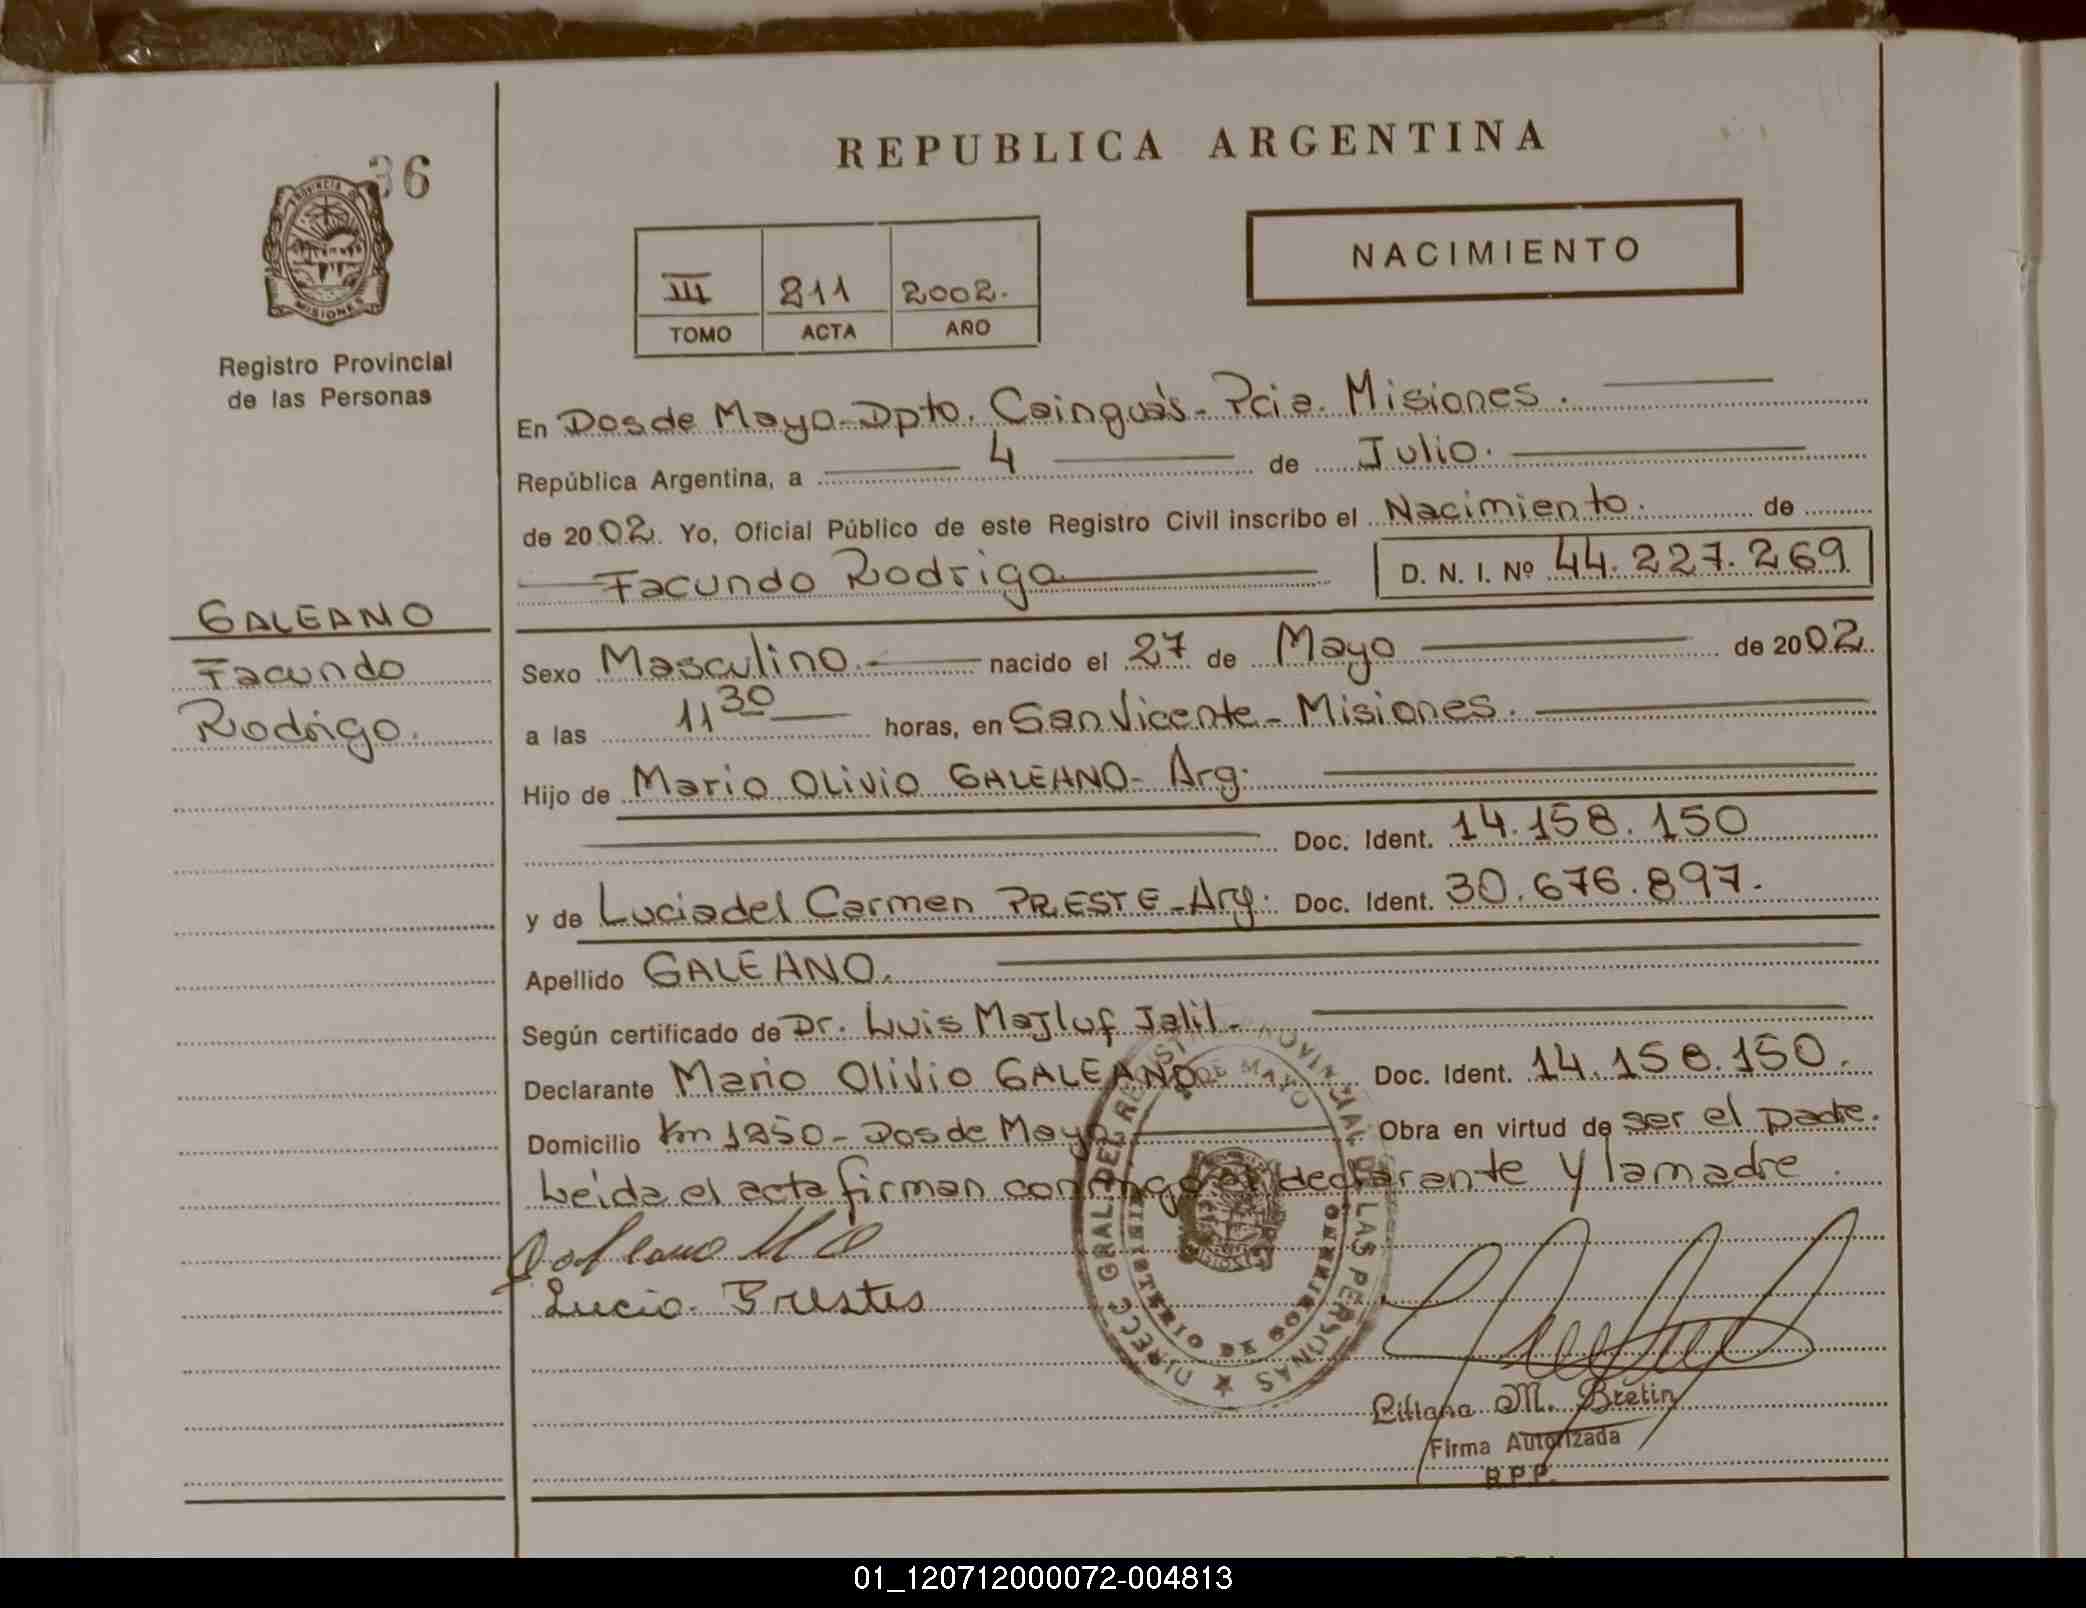 36
REPUBLICA ARGENTINA
NACIMIENTO
III 211 2002.
TOMO ACTA AÑO
PROVINCIA DE MISIONES
Registro Provincial
de las Personas
En Dos de Mayo-Dpto. Cainguás- Pcia. Misiones.
República Argentina, a 4 de Julio.
de 2002. Yo, Oficial Público de este Registro Civil inscribo el Nacimiento. de
Facundo Rodrigo D. N. I. Nº 44.227.269
GALEANO
Facundo
Rodrigo.
Sexo Masculino. nacido el 27 de Mayo de 2002.
a las 11 30 horas, en San Vicente - Misiones.
Hijo de Mario Olivio GALEANO- Arg.
Doc. Ident. 14.158.150
y de Lucia del Carmen PRESTE-Arg. Doc. Ident. 30.676.897.
Apellido GALEANO.
Según certificado de Dr. Luis Majluf Jalil-
Declarante Mario Olivio GALEANO Doc. Ident. 14.158.150.
Domicilio Km 1250- Dos de Mayo Obra en virtud de ser el padre.
Leída el acta firman conmigo el declarante y la madre.
Galeano M O
Lucia Prestes
DIRECC GRAL DEL REGISTRO PROVINCIAL DE LAS PERSONAS
DOS DE MAYO
MINISTERIO DE GOBIERNO
Liliana M. Bretin
Firma Autorizada
R.P.P.
01_120712000072-004813